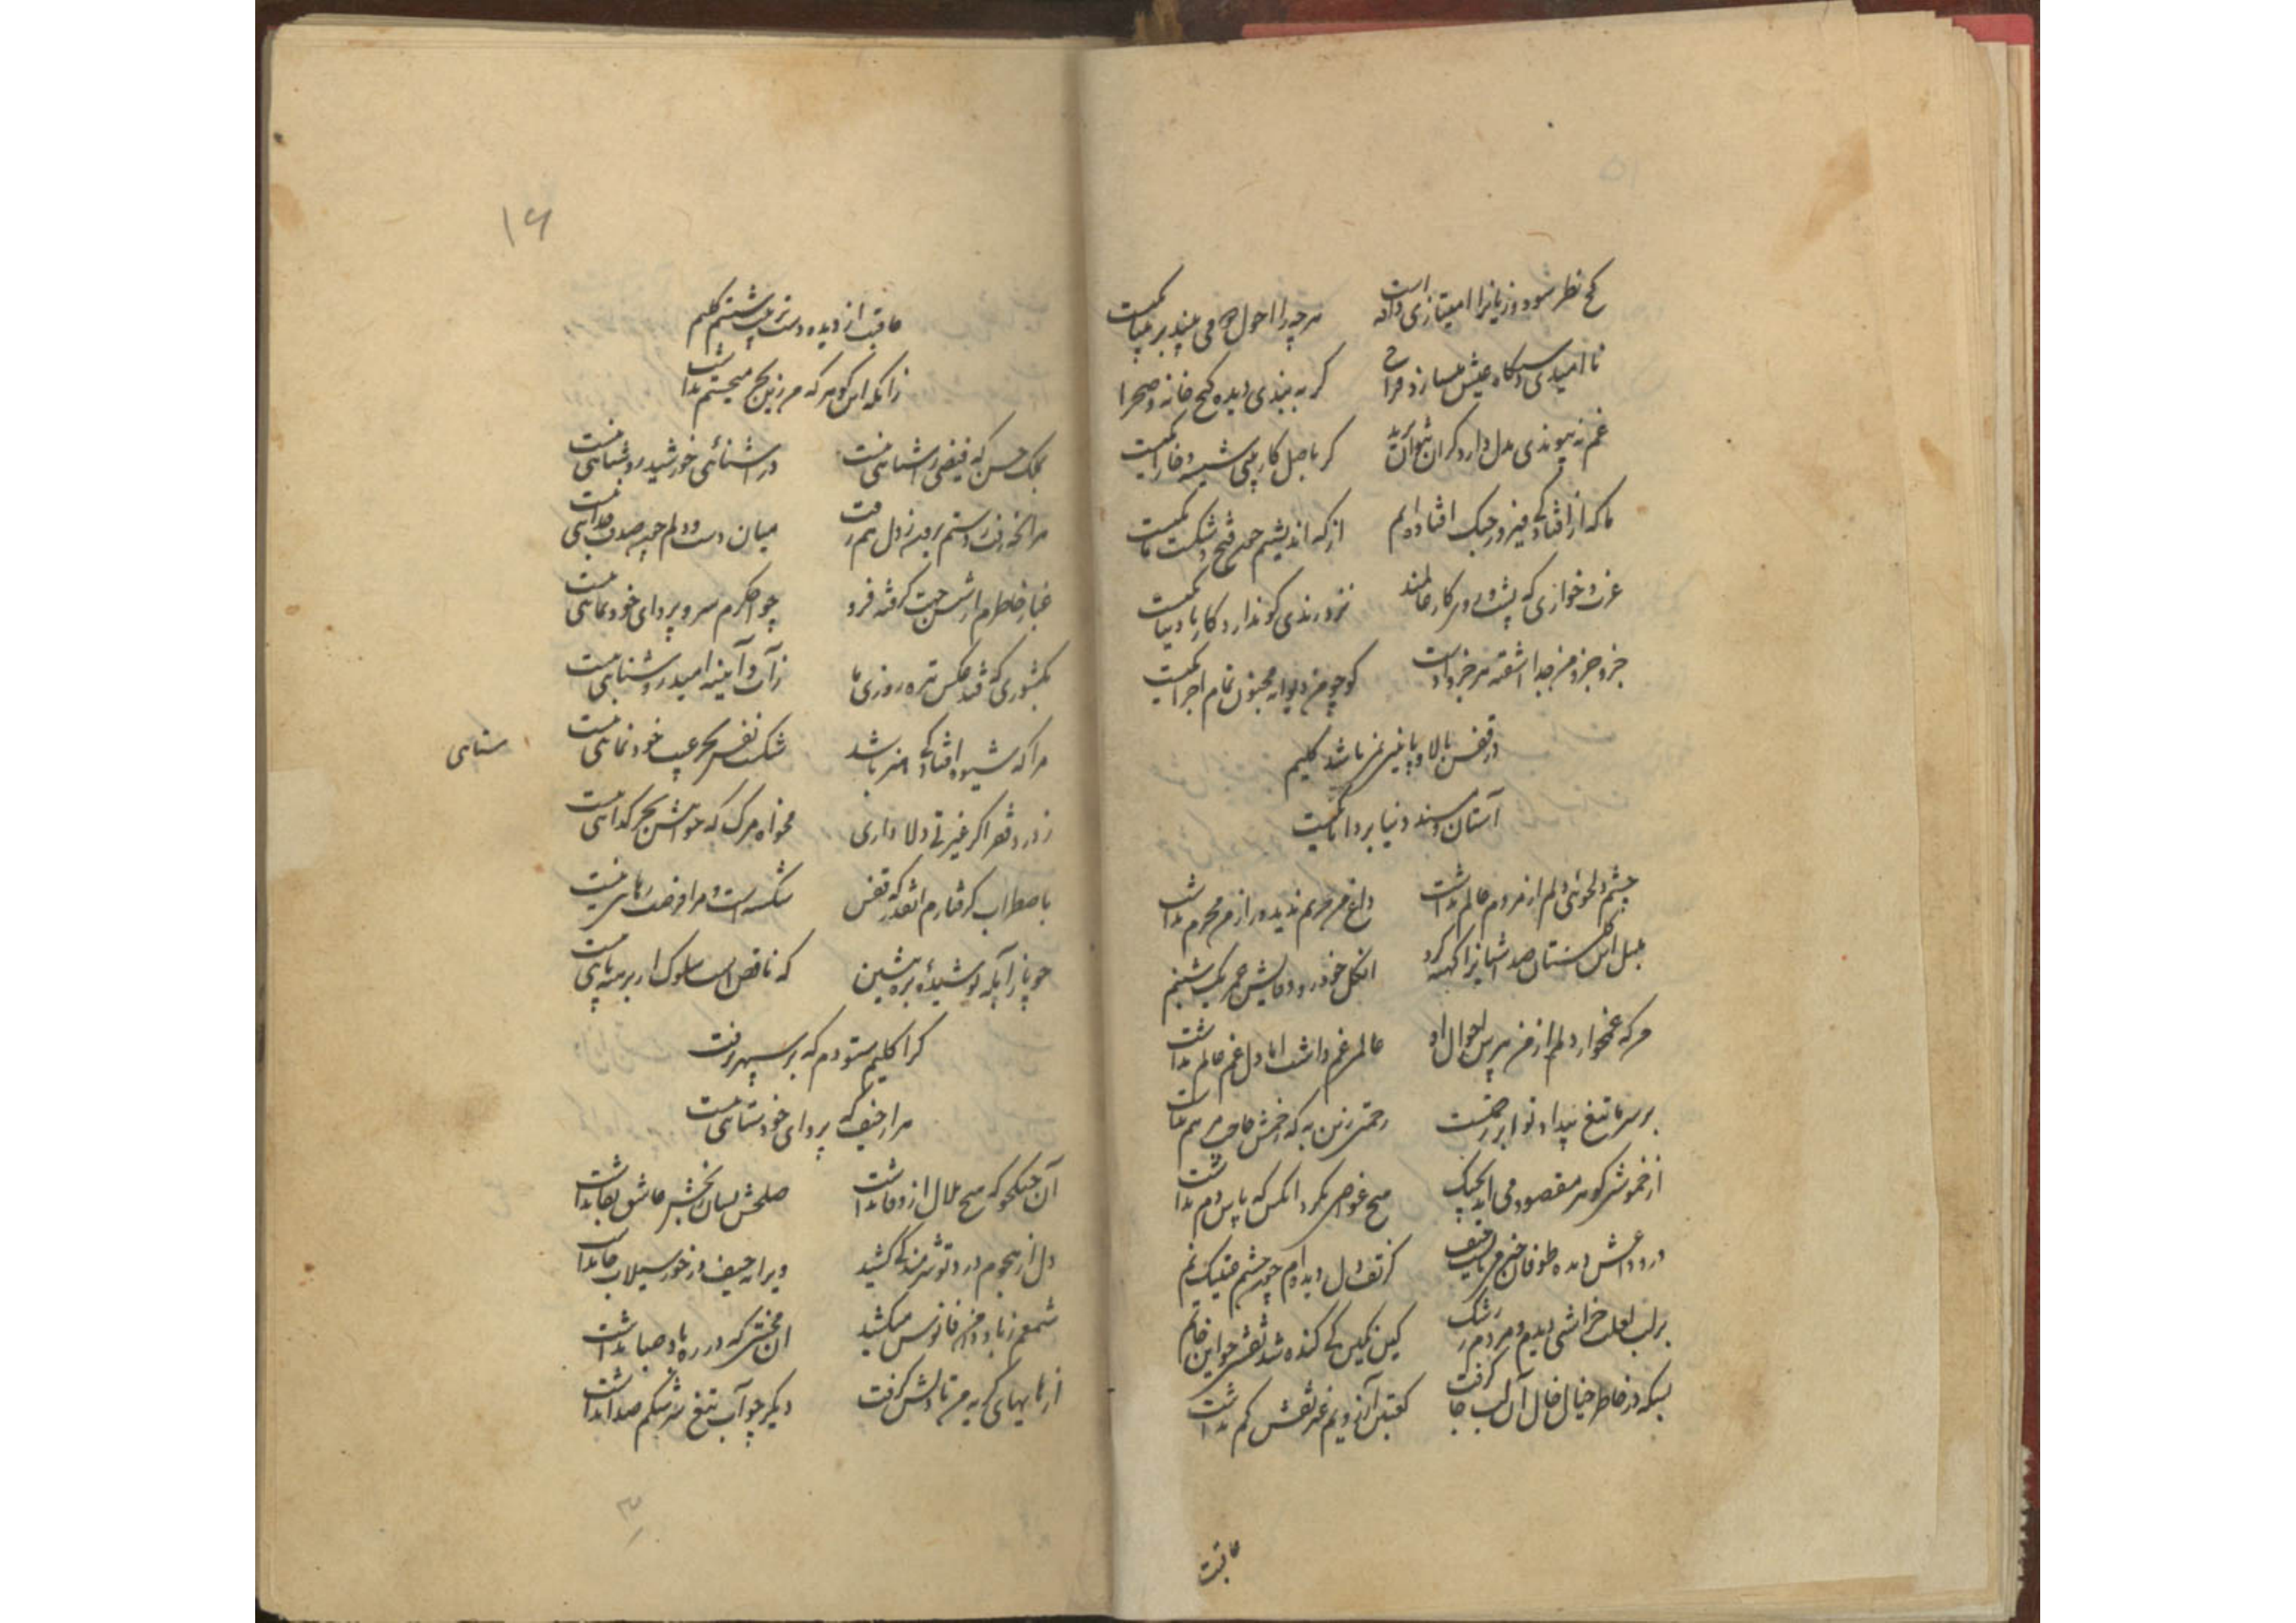 کج نظر سود و زیانرا امتیازی داده است هرچه را احول دو می بیند بر بینا یکیست
نا امیدی دستگاه عیش میسازد فراخ گر به بندی دیده کنج خانه و صحرا یکیست
غم نه پیوندی بدل دارد کران بتوان برید گر باصل کار بینی شیشه و خارا یکیست
ما که از افتادگی فیروز جنگ افتاده ایم از که اندیشیم چون فتح و شکست ما یکیست
عزت و خواری که پشت و روی کار عالمند نزد رندی کو ندارد کار با دنیا یکیست
جزو جزو من جدا آشفته هر جزو اوست کو چو من دیوانه مجنون تمام اجزا یکیست
در قفس بالا و پایین نمی باشد کلیم
آستان و مسند دنیا بر دانا یکیست
چشم دلجوئی دلم از مردم عالم نداشت داغ من مرهم ندید و راز من محرم نداشت
بلبل این گلستان صد آشیانرا کهنه کرد آن گل خودرو وفایش عمر یک شبنم
هرکه غمخوار دلم از من مپرس احوال او عالمی غم داشت اما دل غم عالم نداشت
بر سر ما تیغ بیداد تو ابر رحمتست رحمتی زین به که زخمش حاجت مرهم نداشت
از خموشی گوهر مقصود می آید بچنگ هیچ غواصی نکرد آنکس که پاس دم نداشت
در وداعش دیده طوفان خیز می بایست حیف کز تف دل دیده ام چون چشم عینک نم
بر لب لعلت خراشی دیدم و مردم ز رشک کین نگین کی کنده شد نقشی چو این خاتم
بسکه در خاطر خیال خال آن لب جا گرفت کعبتین آرزویم غیر نقش کم نداشت
عاقبت
۱۶
عاقبت از دیده دست تربیت شستم کلیم
زانکه این گوهر که من زین بحر میجستم نداشت
بملک حسن که فیض آشنائی نیست در آشنائی خورشید روشنائی نیست
مرا نخواند و رفتم برون ز دل هم رفت میان دست و دلم چون صدف جدائی نیست
غبار خاطرم از شش جهت گرفته فرو چو اخگرم سر و پروای خودنمائی نیست
بکشوری که فتد عکس تیره روزی ما ز آب و آینه امید روشنائی نیست
مرا که شیوه افتادگی هنر باشد شکست نفس بجز عیب خودنمائی نیست
ستائی
ز درد فقر اگر غیرتی دلا داری مخواه مرگ که خواهش بجز گدائی نیست
باضطراب گرفتارم آنقدر که قفس شکسته است و مرا فرصت رهائی نیست
چو پا ز آبله پوشیده بره بنشین که ناقص است سلوک ار برهنه پائی نیست
کرا کلیم ستودم که بر سپهر نرفت
مرا حیف که پروای خودستائی نیست
آن جنگجو که هیچ ملال از وفا نداشت صلحش بسان رنجش عاشق بقا نداشت
دل از هجوم درد تو شرمندگی کشید ویرانه حیف درخور سیلاب جا نداشت
شمعم ز باد دامن فانوس میکشید آن محنتی که در ره باد صبا نداشت
از هایهای گریه من تا دلش گرفت دیگر چو آب تیغ سرشکم صدا نداشت